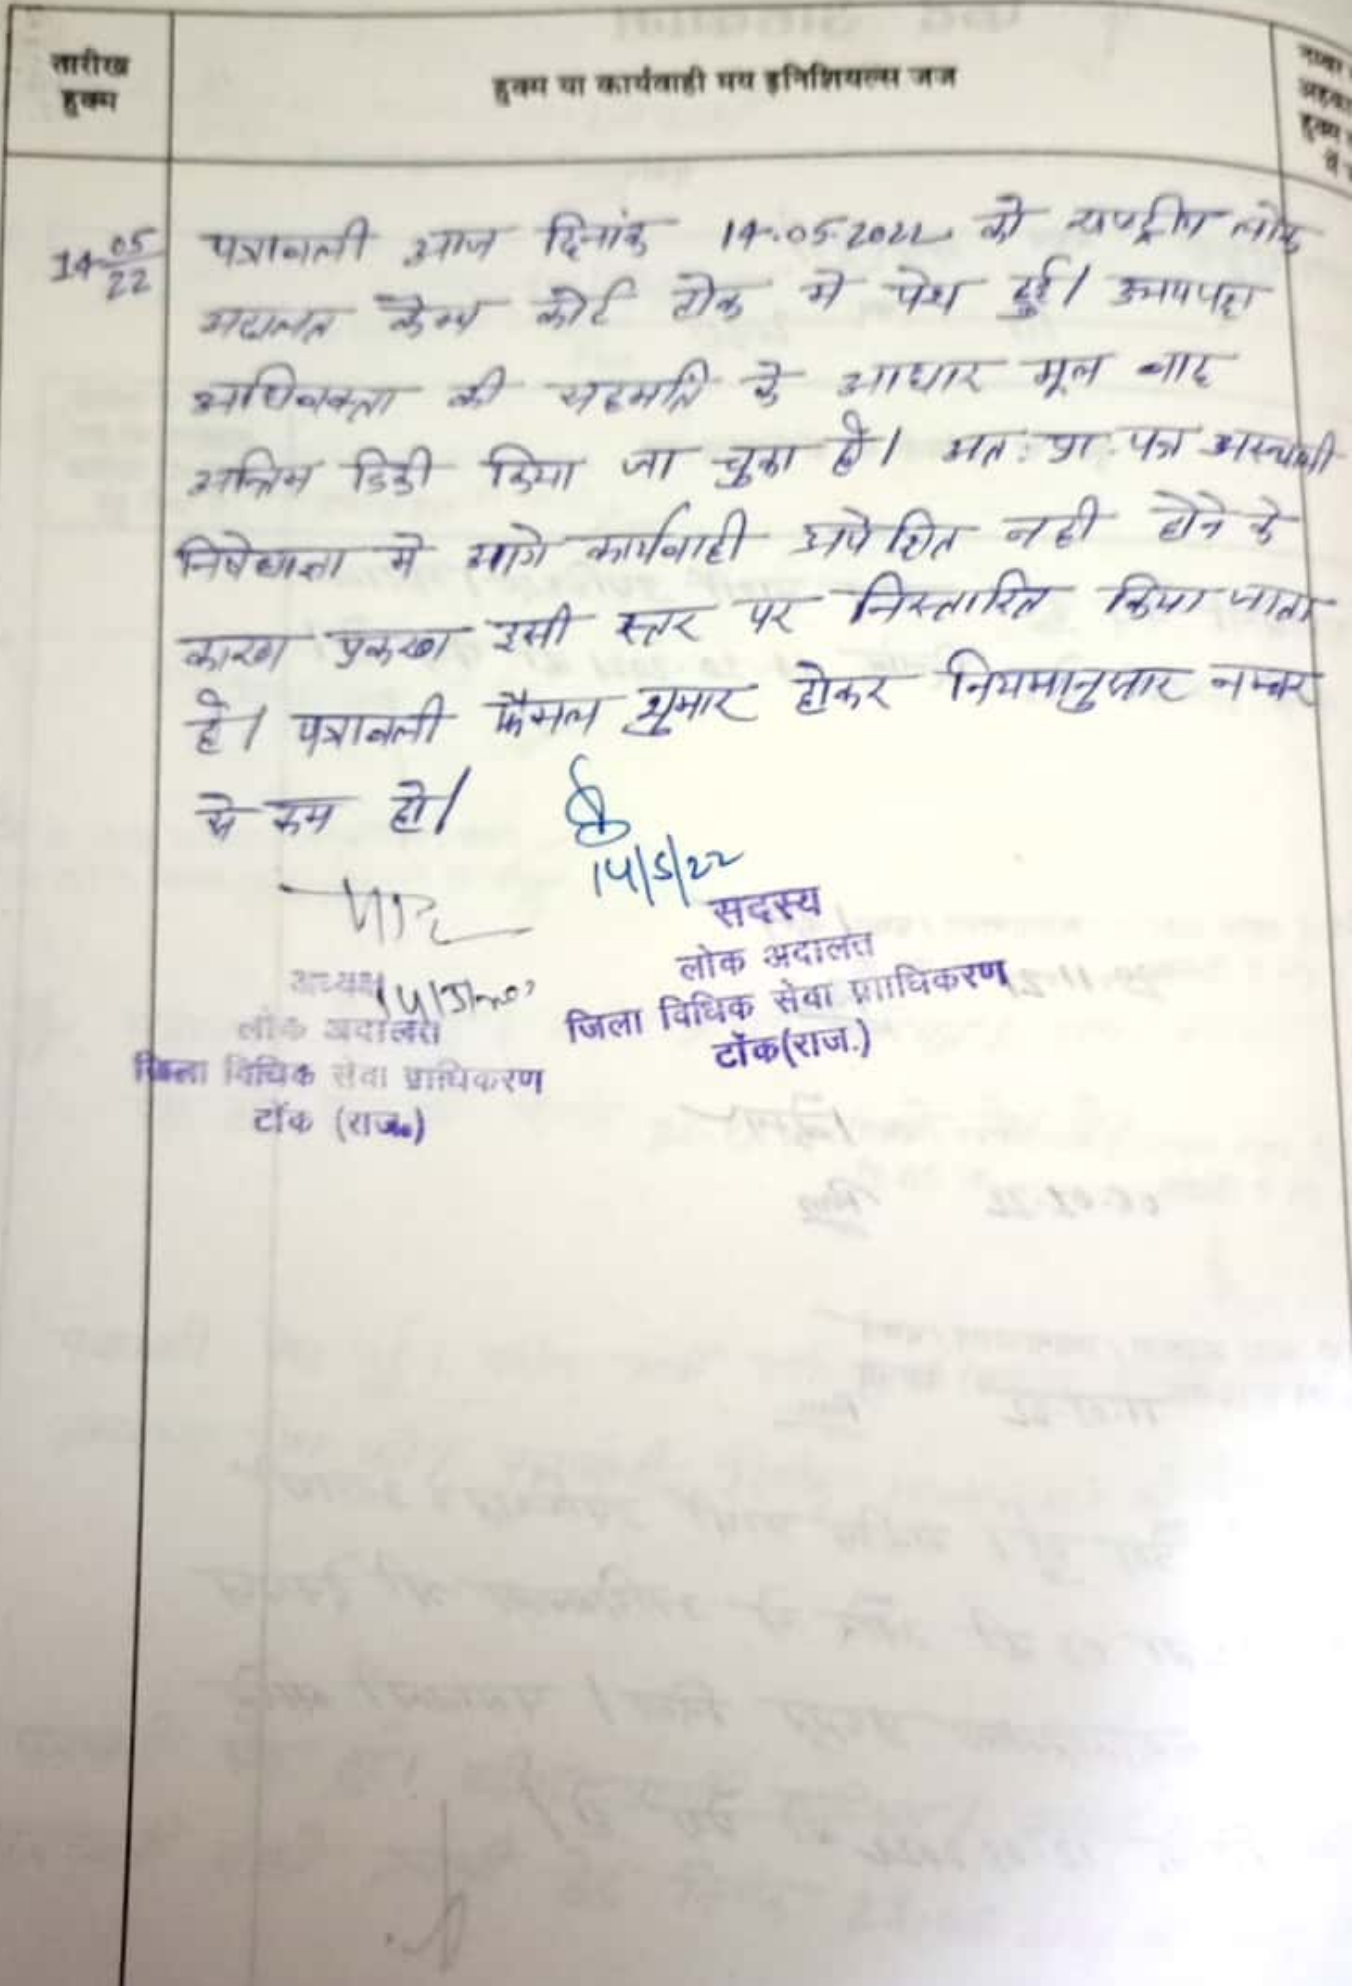 तारीख
हुक्म
हुक्म या कार्यवाही मय इनिशियल्स जज
हुक्म
14-05/22
पत्रावली आज दिनांक 14.05.2022 को राष्ट्रीय लोक
अदालत कैम्प कोर्ट टोंक मे पेश हुई। उभयपक्ष
अधिवक्ता की सहमति के आधार मूल वाद
अन्तिम डिक्री किया जा चुका है। अत: प्रा. पत्र अस्थायी
निषेधाज्ञा मे आगे कार्यवाही अपेक्षित नही होने के
कारण प्रकरण इसी स्तर पर निस्तारित किया जाता
है। पत्रावली फैसल शुमार होकर नियमानुसार नम्बर
से कम हो।
14/5/22
सदस्य
लोक अदालत
जिला विधिक सेवा प्राधिकरण
टोंक(राज.)
अध्यक्ष
लोक अदालत
जिला विधिक सेवा प्राधिकरण
टोंक (राज०)